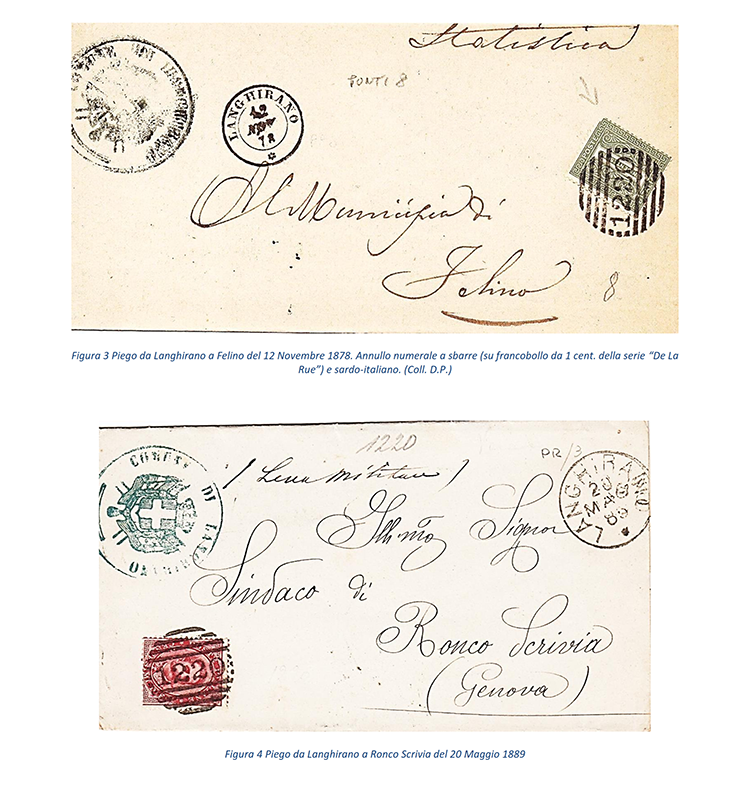 Statistica
PONTI 8
LANGHIRANO
12
NOV
78
1220
Al Municipio di
Felino
8
Figura 3 Piego da Langhirano a Felino del 12 Novembre 1878. Annullo numerale a sbarre (su francobollo da 1 cent. della serie “De La
Rue”) e sardo-italiano. (Coll. D.P.)
1220
PR/3
COMUNE DI LANGHIRANO
( Leva Militare )
LANGHIRANO
20
MAG
89
Illmo Signor
Sindaco di
Ronco Scrivia
(Genova)
122
Figura 4 Piego da Langhirano a Ronco Scrivia del 20 Maggio 1889